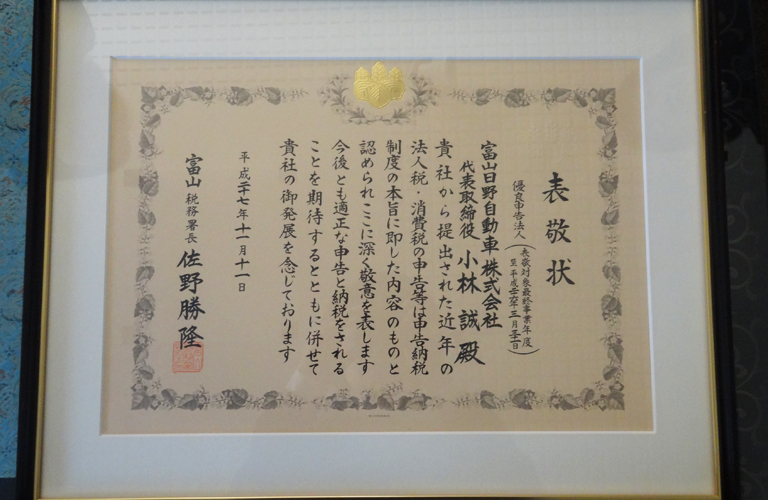 表敬状
優良申告法人
(表敬対象最終事業年度
至平成二六年三月三一日)
富山日野自動車株式会社
代表取締役 小林誠殿
貴社から提出された近年の
法人税・消費税の申告等は申告納税
制度の本旨に即した内容のものと
認められここに深く敬意を表します
今後とも適正な申告と納税をされる
ことを期待するとともに併せて
貴社の御発展を念じております
平成二十七年十一月十一日
富山税務署長 佐野勝隆